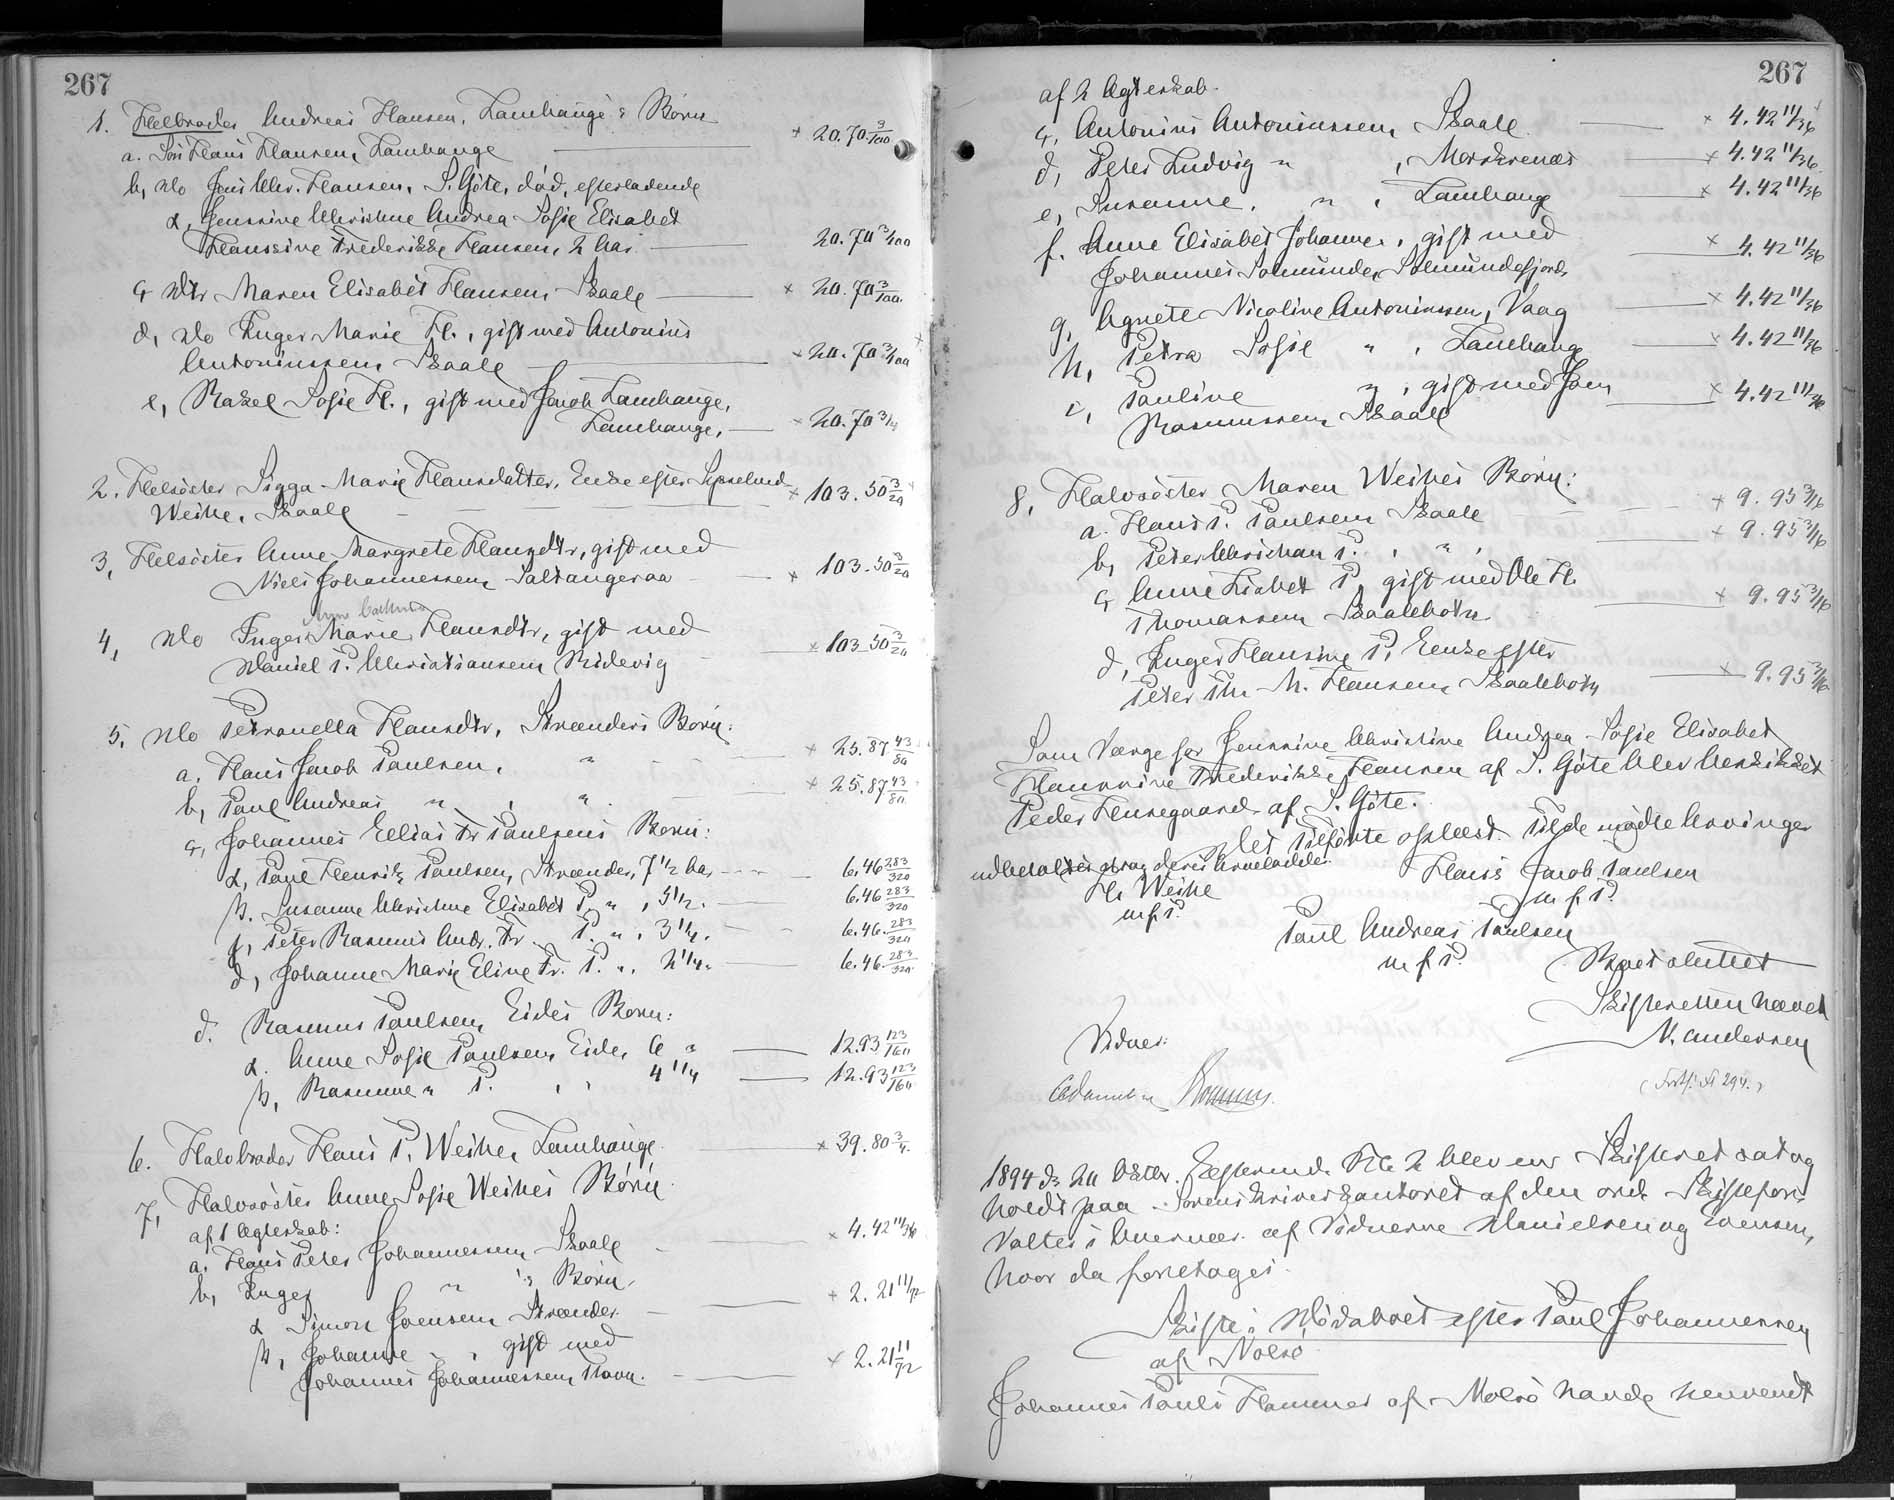 267
1. Helbroder Andreas Hansen, Lamhauge's Børn
a. Søn Hans Hansen, Lamhauge × 20.70 3/100
b, do Jens Chr. Hansen, S. Göte, død, efterladende
α, Jensine Christine Andrea Sofie Elisabet
Hanssine Frederikke Hansen, 2 Aar 20.70 3/100
c, Dtr Maren Elisabet Hansen, Skaale × 20.70 3/100
d, do Inger Marie H., gift med Antonius
Antoniussen, Skaale × 20.70 3/100
e, Rakel Sofie H., gift med Jacob Lamhauge,
Lamhauge, × 20.70 3/100
2. Helsöster Sigga Marie Hansdatter, Enke efter
Weihe, Skaale × 103.50 3/20
3, Helsöster Anne Margrete Hansdtr, gift med
Niels Johannessen, Saltangeraa × 103.50 3/20
Anne Cathrine
4, do Inger Marie Hansdtr, gift med
Daniel P. Christiansen, Ridevig × 103.50 3/20
5, do Petranella Hansdtr, Strænders Børn:
a. Hans Jacob Paulsen, " × 25.87 43/80
b, Paul Andreas " , " × 25.87 43/80
c, Johannes Ellias Fr Paulsens Børn:
α, Paul Henrik Paulsen, Strænder, 7 1/2 Aar 6.46 283/320
β. Susanne Christine Elisabet P. " , 5 1/2. 6.46 283/320
γ, Peter Rasmus Andr. Fr. P. " , 3 1/4. 6.46. 283/320
δ, Johanne Marie Eline Fr. P. " , 2 1/4. 6.46. 283/320
d. Rasmus Paulsen, Eides Børn:
α. Anne Sofie Paulsen, Eide, 6 " 12.93 123/160
β, Rasmine " P. , , 4 1/4 12.93 123/160
6. Halvbroder Hans P. Weihe, Lamhauge × 39.80 3/4
7, Halvsöster Anne Sofie Weihes Børn
af 1 Ægteskab:
a. Hans Peter Johannessen, Skaale × 4.42 11/36
b, Inger " 's Børn
α Simon Joensen, Strænder × 2.21 11/72
β, Johanne " , gift med
Johannes Johannessen, × 2.21 11/72
267
af 2 Ægteskab.
c, Antonius Antoniussen, Skaale × 4.42 11/36
d, Peter Ludvig " , Morskrenæs × 4.42 11/36
e, Susanne, " , Lamhauge × 4.42 11/36
f. Anne Elisabet Johanne, gift med
Johannes Solmunde, Solmundefjord × 4.42 11/36
g, Agnete Nicoline Antoniussen, Vaag × 4.42 11/36
h, Petra Sofie " , Lamhauge × 4.42 11/36
i, Pauline " , gift med Joen
Rasmussen, Skaale × 4.42 11/36
8, Halvsöster Maren Weihes Børn:
a. Hans P. Paulsen, Skaale × 9.95 3/16
b, Peter Christian P. , " , × 9.95 3/16
c, Anne Lisabet P, gift med Ole H.
Thomassen, Skaalebotn × 9.95 3/16
d, Inger Hansine P, Enke efter
Peter Chr. M. Hansen, Skaalebotn × 9.95 3/16
Som Værge for Jenssine Christine Andrea Sofie Elisabet
Hanssine Frederikke Hansen af S. Göte blev beskikket
Peder Husegaard af S. Göte.
Det Tilførte oplæst. Tilstede mødte Arvinger
udbetaltes strax deres Arvelodder.
H. Weihe
m f. P.
Hans Jacob Paulsen
m f. P.
Paul Andreas Paulsen
m f P.
Boet sluttet
Skifteretten hævet
N. Andersen
Vidner:
(Forts. S. 294.)
1894 d. 20 Oktbr. Eftermd. Kl. 2 blev en Skifteret sat og
holdt paa Sorenskriverkontoret af den ord. Skiftefor-
valter i Overvær af Vidnerne Danielsen og Evensen,
hvor da foretages.
Skifte i Dødsboet efter Paul Johannessen
af Nolsø
Johannes Pauls Hammer af Nolsø havde henvendt